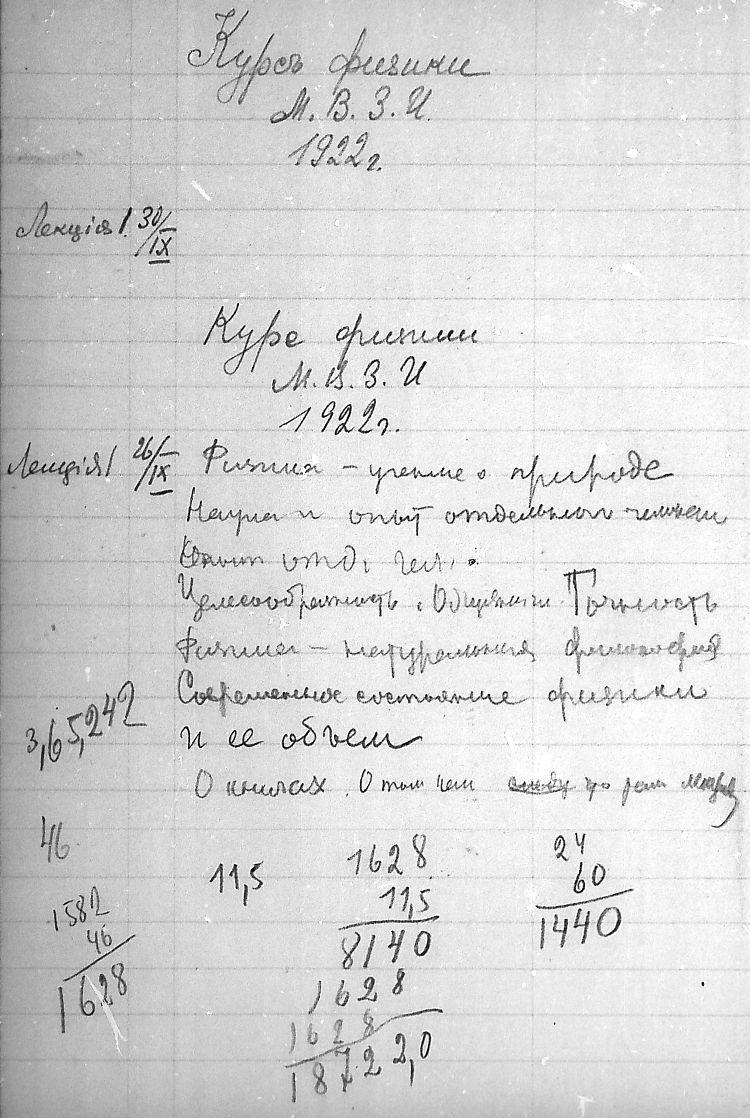 Курсъ физики
М. В. З. И.
1922 г.
Лекція 1. 30/IX
Курс физики
М. В. З. И
1922 г.
Лекція 1 26/IX
Физика – учение о природе
Наука и опыт отдельного человека
Опыт отд. чел.
Целесообразность. Точность
Физика – натуральная философия
Современное состояние физики
и ее объем
3,65,242
О книгах. О том чем
46
11,5
1628
11,5
8140
1628
1628
18722,0
24
60
1440
1582
46
1628